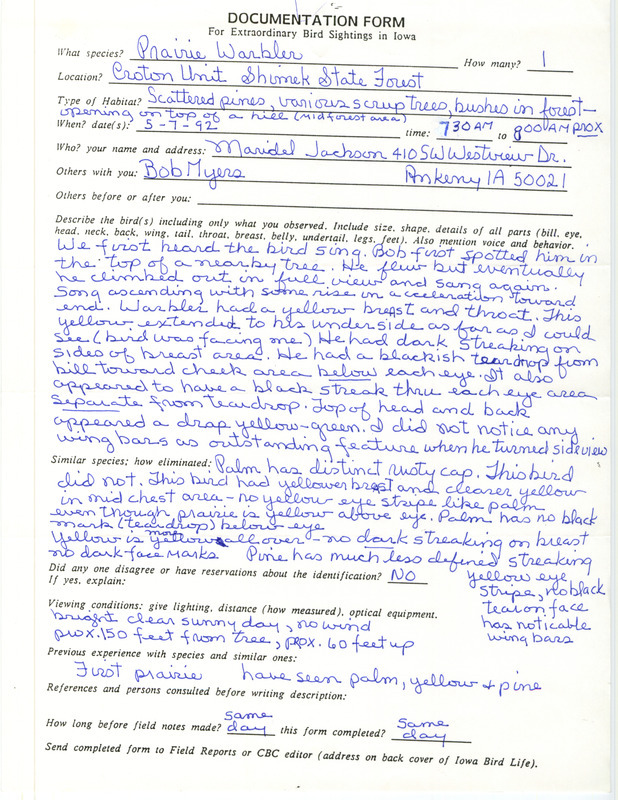 DOCUMENTATION FORM
For Extraordinary Bird Sightings in Iowa
What species? Prairie Warbler How many? 1
Location? Croton Unit Shimek State Forest
Type of Habitat? Scattered pines, various scrup trees, bushes in forest-
opening on top of a hill (mid forest area)
When? date(s): 5-7-92 time: 730 AM to 800 AM prox
Who? your name and address: Maridel Jackson 410 SW Westview Dr.
Others with you: Bob Myers Ankeny IA 50021
Others before or after you:
Describe the bird(s) including only what you observed. Include size, shape, details of all parts (bill, eye,
head, neck, back, wing, tail, throat, breast, belly, undertail, legs, feet). Also mention voice and behavior.
We first heard the bird sing. Bob first spotted him in
the top of a nearby tree. He flew but eventually
he climbed out in full view and sang again.
Song ascending with some rise in acceleration toward
end. Warbler had a yellow breast and throat. This
yellow extended to his underside as far as I could
see (bird was facing me) He had dark streaking on
sides of breast area. He had a blackish teardrop from
bill toward cheek area below each eye. It also
appeared to have a black streak thru each eye area
separate from teardrop. Top of head and back
appeared a drap yellow-green. I did not notice any
wing bars as outstanding feature when he turned sideview
Similar species; how eliminated: Palm has distinct rusty cap. This bird
did not. This bird had yellower breast and clearer yellow
in mid chest area - no yellow eye stripe like palm
even though prairie is yellow above eye. Palm has no black
mark (teardrop) below eye
Yellow is more yellow all over - no dark streaking on breast
no dark face marks Pine has much less defined streaking
Did any one disagree or have reservations about the identification? NO yellow eye
If yes, explain: stripe, no black
tear on face
Viewing conditions: give lighting, distance (how measured), optical equipment. has noticable
bright clear sunny day, no wind wing bars
prox. 150 feet from tree, prox. 60 feet up
Previous experience with species and similar ones:
First prairie have seen palm, yellow + pine
References and persons consulted before writing description:
How long before field notes made? same day this form completed? same day
Send completed form to Field Reports or CBC editor (address on back cover of Iowa Bird Life).